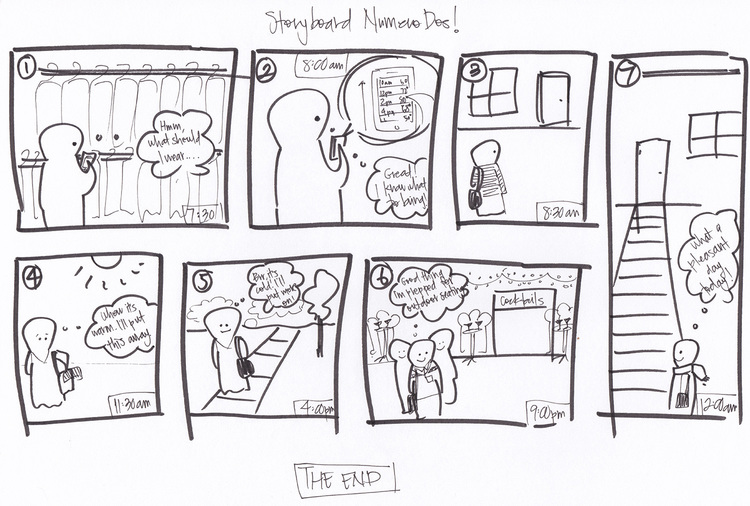 Storyboard Numero Dos!
1
Hmm,
what should
I wear....
7:30
2
8:00am
10am 60°
12pm 75°
2pm 80°
4pm 68°
Great!
I know what
to bring!
3
8:30am
4
Whew its
warm. I'll put
this away
11:30am
5
Brr, it's
cold! I'll
put
on!
4:00pm
6
Good thing
I'm prepped for
outdoor seating
Cocktails
9:00pm
7
What a
pleasant
day
today!
12:00am
THE END